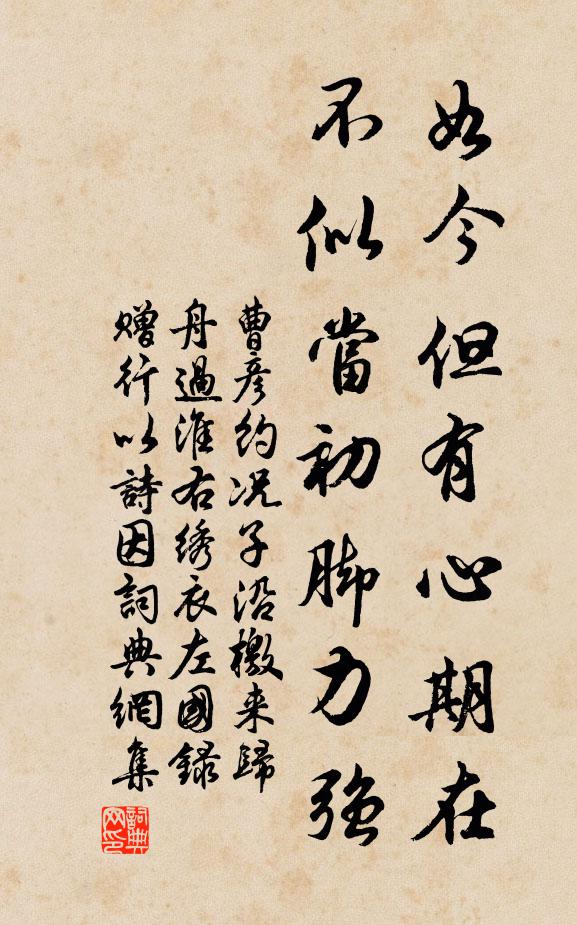 如今但有心期在
不似當初脚力強
曹彦約况子沿檄来歸
舟過淮右绣衣左國録
贈行以詩因詞典網集
詞典网印